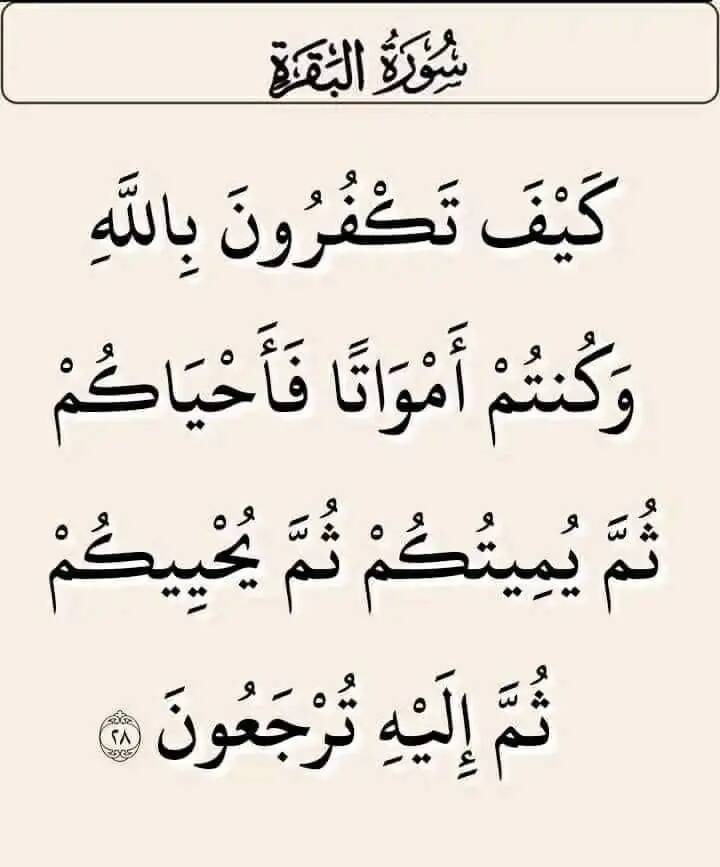 سُورَةُ البَقَرَةِ
كَيْفَ تَكْفُرُونَ بِاللَّهِ
وَكُنتُمْ أَمْوَاتًا فَأَحْيَاكُمْ
ثُمَّ يُمِيتُكُمْ ثُمَّ يُحْيِيكُمْ
ثُمَّ إِلَيْهِ تُرْجَعُونَ ٢٨